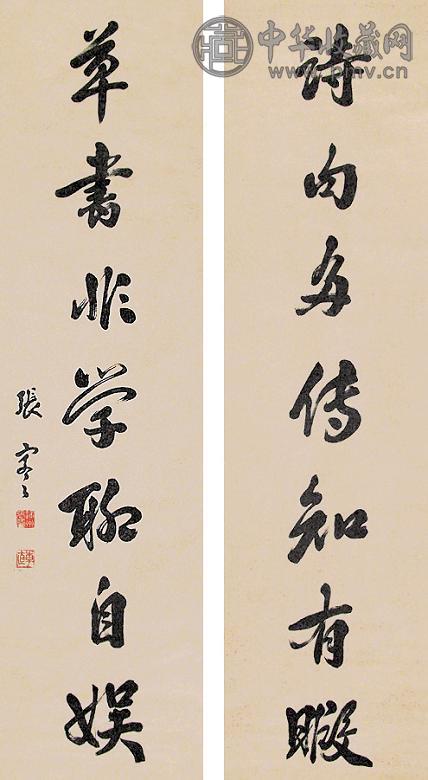 中华收藏网
www.pmv.cn
詩句多傳知有暇
草書非學聊自娛
張謇